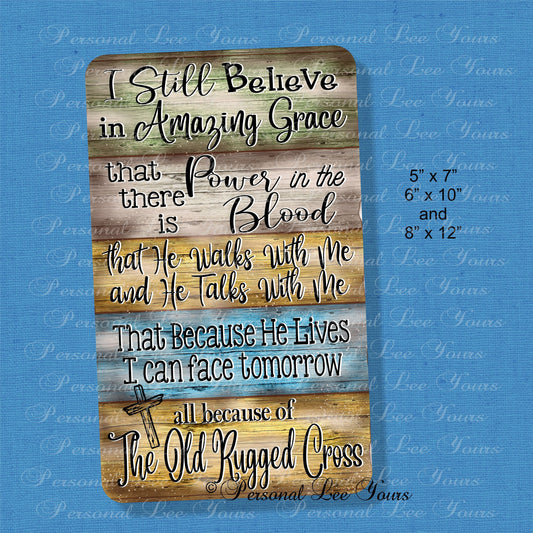 I Still Believe
in Amazing Grace
that there is Power in the Blood
that He Walks With Me
and He Talks With Me
That Because He Lives
I can face tomorrow
all because of
The Old Rugged Cross
© Personal Lee Yours
5” x 7”
6” x 10”
and
8” x 12”
Personal Lee Yours